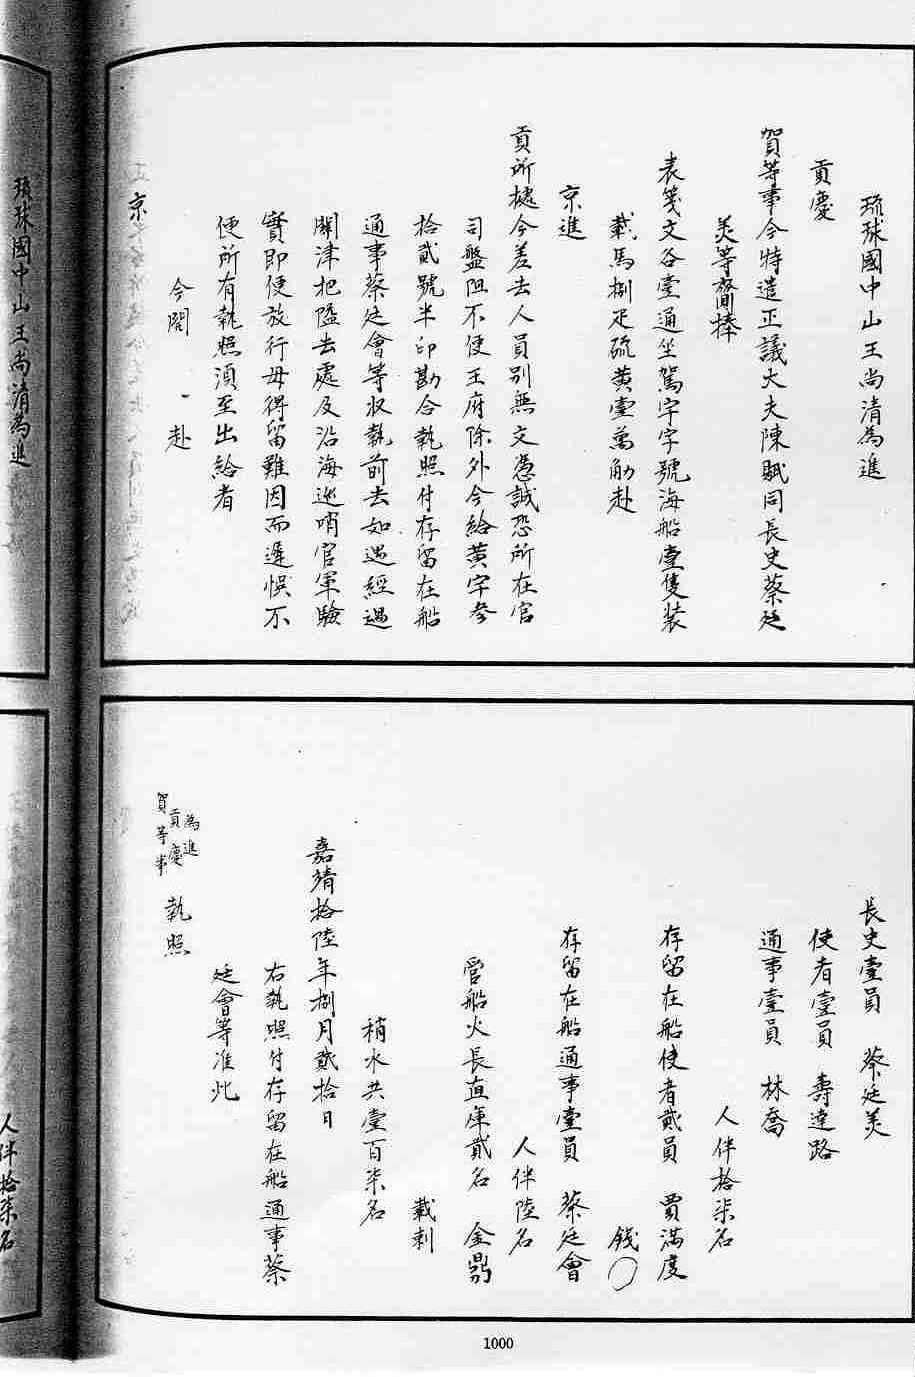 琉球國中山王尚清為進
貢慶
賀等事今特遣正議大夫陳賦同長史蔡廷
美等齎捧
表箋文各壹通坐駕宇字號海船壹隻裝
載馬捌疋硫黃壹萬觔赴
京進
貢所據今差去人員別無文憑誠恐所在官
司盤阻不便王府除外今給黃字參
拾貳號半印勘合執照付存留在船
通事蔡廷會等收執前去如遇經過
關津把隘去處及沿海巡哨官軍驗
實即便放行毋得留難因而遲悞不
便所有執照須至出給者
今開 赴
京
長史壹員 蔡廷美
使者壹員 壽達路
通事壹員 林喬
人伴拾柒名
存留在船使者貳員 賈滿度
錢〇
存留在船通事壹員 蔡廷會
人伴陸名
管船火長直庫貳名 金鼎
載刺
稍水共壹百柒名
嘉靖拾陸年捌月貳拾日
右執照付存留在船通事蔡
廷會等准此
為進
貢慶
賀等事 執照
琉球國中山王尚清為進
人伴拾柒名
1000